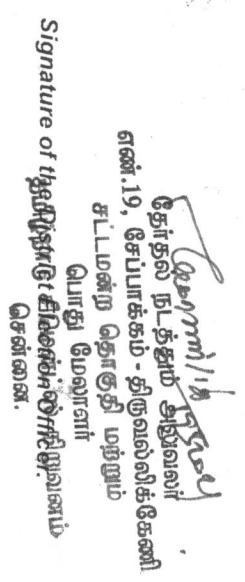 தேர்தல் நடத்தும் அலுவலர்
எண்.19, சேப்பாக்கம் - திருவல்லிக்கேணி
சட்டமன்ற தொகுதி மற்றும்
பொது மேலாளர்
Signature of the District Election Officer.
சென்னை.